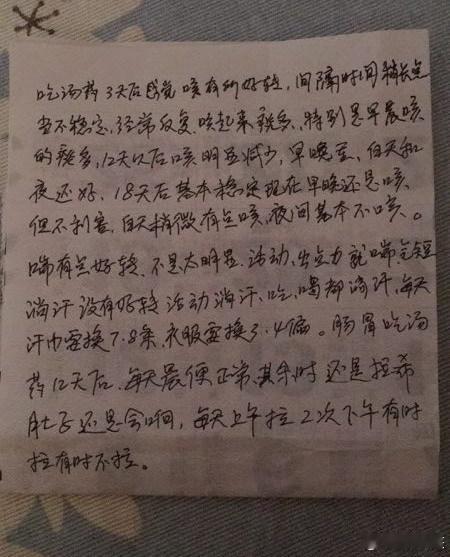 吃汤药3天后感觉咳有所好转,间隔时间稍长点
当不稳定,经常反复,咳起来痰多,特别是早晨咳
的痰多,12天以后咳明显减少,早晚重,白天和
夜还好,18天后基本稳定现在早晚还是咳
但不利害,白天稍微有点咳,夜间基本不咳。
喘有点好转,不是太明显,活动、出点力就喘气短
淌汗没有好转活动淌汗、吃、喝都淌汗,每天
汗巾要换7.8条、衣服要换3.4遍。肠胃吃汤
药12天后,每天晨便正常,其余时还是拉希
肚子还是会,每天上午拉2次下午有时
拉有时不拉。